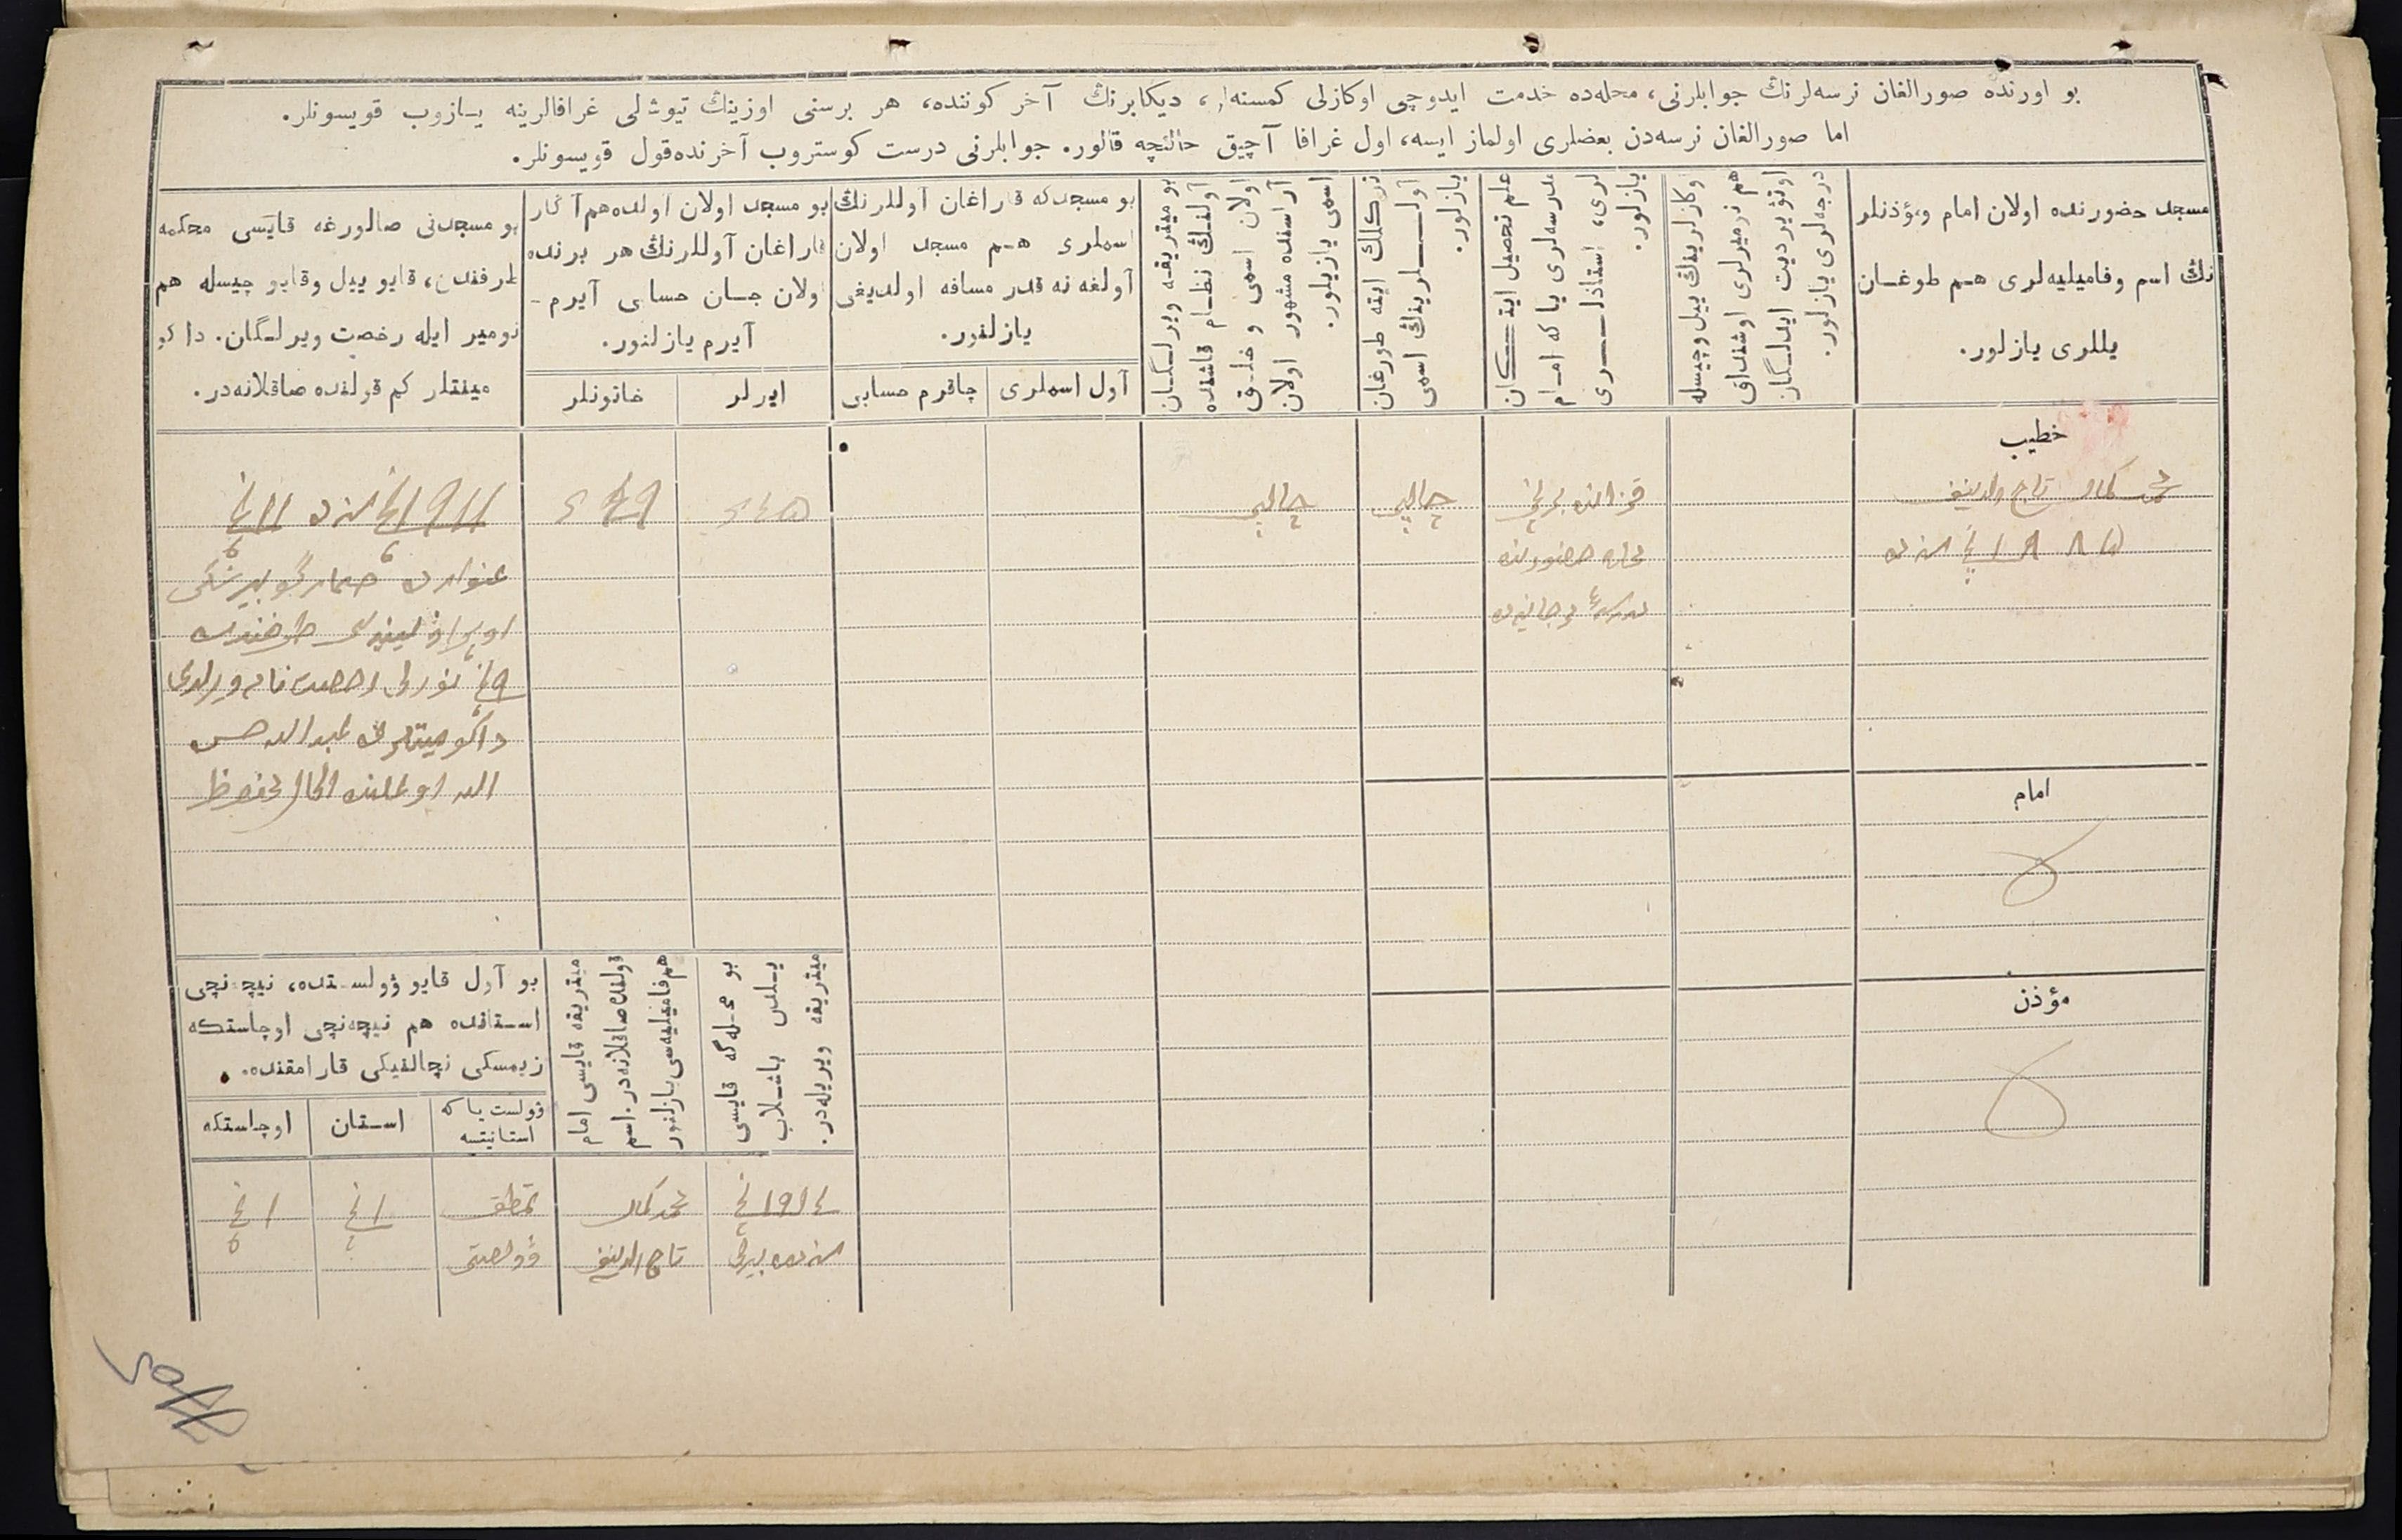 بو اورنده صورالغان نرسه‌لرنڭ جوابلرنی، محله‌ده خدمت ایدوچی اوکازلی کمسنه‌لر، دیکابرنڭ آخر کوننده، هر برسنی اوزینڭ تیوشلی غرافالرینه یازوب قویسونلر.
اما صورالغان نرسه‌دن بعضلری اولماز ایسه، اول غرافا آچیق حالنچه قالور. جوابلرنی درست کوستروب آخرنده قول قویسونلر.
مسجد حضورنده اولان امام ومؤذنلر
نڭ اسم وفامیلیه‌لری هم طوغان
یللری یازلور.
وکازلرینڭ ییل وچیسله
هم نومیرلری اوشنداق
اوتویردیت ایدلگان
درجه‌لری یازلور.
علم تحصیل ایتکان
مدرسه‌لری یا که امام
لری، استاذلری
یازلور.
نزکلك ایته طورغان
آوللرینڭ اسمی
یازلور.
بو میتریقه ویرلگان
آولنڭ نظام قاشنده
اولان اسمی و خلق
آراسنده مشهور اولان
اسمی یازیلور.
بو مسجدکه قاراغان آوللرنڭ
اسملری هم مسجد اولان
آولغه نه قدر مسافه اولدیغی
یازلنور.
آول اسملری
چاقرم حسابی
بو مسجد اولان اولده هم آڭار
قاراغان آوللرنڭ هر برنده
اولان جان حسابی آیرم -
آیرم یازلنور.
ایرلر
خاتونلر
بو مسجدنی صالورغه قایسی محکمه
طرفندن، قایو ییل وقایو چیسله هم
نومیر ایله رخصت ویرلگان. داکو
مینتلر کم قولنده صاقلانه‌در.
خطیب
محمد کمال تاج الدینف
۱۸۸۵ نچی سنه‌ده
قزانده برنچی
محله حضورنده
مدرسهٔ مرجانیه‌ده
چالپی
چالپی
۲۴۵
۲۴۹
۱۹۱۱ نچی سنه‌ده ۱۱ نچی
اوپراولینیه‌سی طرفندن
۹ نچی نومرلی رخصت نامه ویرلدی
داکومینتلری عبدالله حسن
امام
مؤذن
بو آول قایو وولستده، نیچه‌نچی
استانده هم نیچه‌نچی اوچاستکه
زیمسکی نچالنیکی قارامقنده.
وولست یا که
استانیتسه
استان
اوچاستکه
میتریقه قایسی امام
قولنده صاقلانه‌در. اسم
هم فامیلیه‌سی یازلنور
بو محله‌گه قایسی
یلدن باشلاب
میتریقه ویریله‌در.
۱۹۱۴ نچی
سنه‌ده بیرلی
محمد کمال
تاج الدینف
وولصتی
۱ نچی
۱ نچی